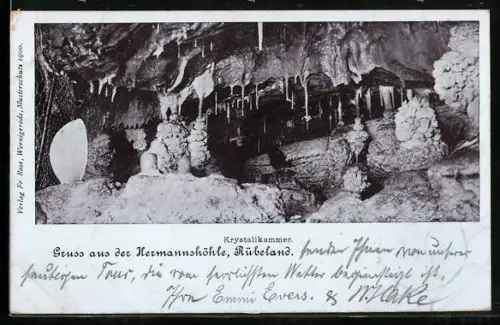 Verlag Fr. Rose, Wernigerode, Musterschutz 1900.
Krystallkammer.
Gruss aus der Hermannshöhle, Rübeland. senden Ihnen von unserer
hiesigen Tour, die vom herrlichsten Wetter begünstigt ist,
Ihre Emmi Evers. &